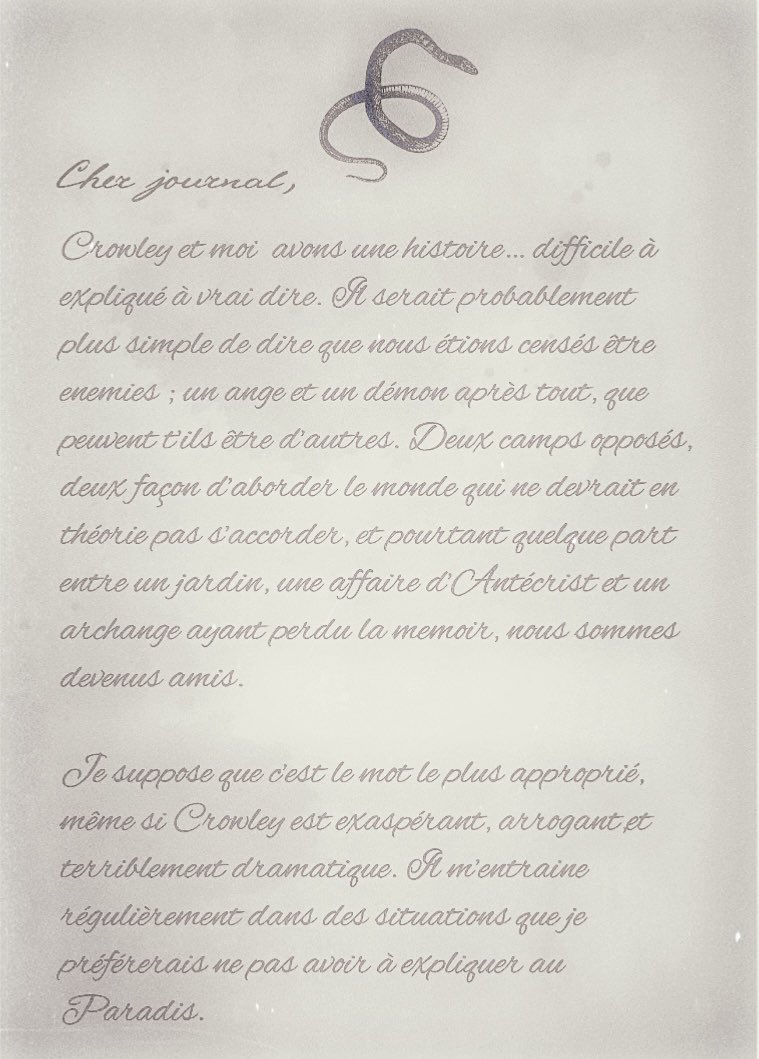 Cher journal,
Crowley et moi avons une histoire... difficile à
expliqué à vrai dire. Il serait probablement
plus simple de dire que nous étions censés être
enemies ; un ange et un démon après tout, que
peuvent t'ils être d'autres. Deux camps opposés,
deux façon d'aborder le monde qui ne devrait en
théorie pas s'accorder, et pourtant quelque part
entre un jardin, une affaire d'Antécrist et un
archange ayant perdu la memoir, nous sommes
devenus amis.
Je suppose que c'est le mot le plus approprié,
même si Crowley est exaspérant, arrogant et
terriblement dramatique. Il m'entraine
régulièrement dans des situations que je
préférerais ne pas avoir à expliquer au
Paradis.